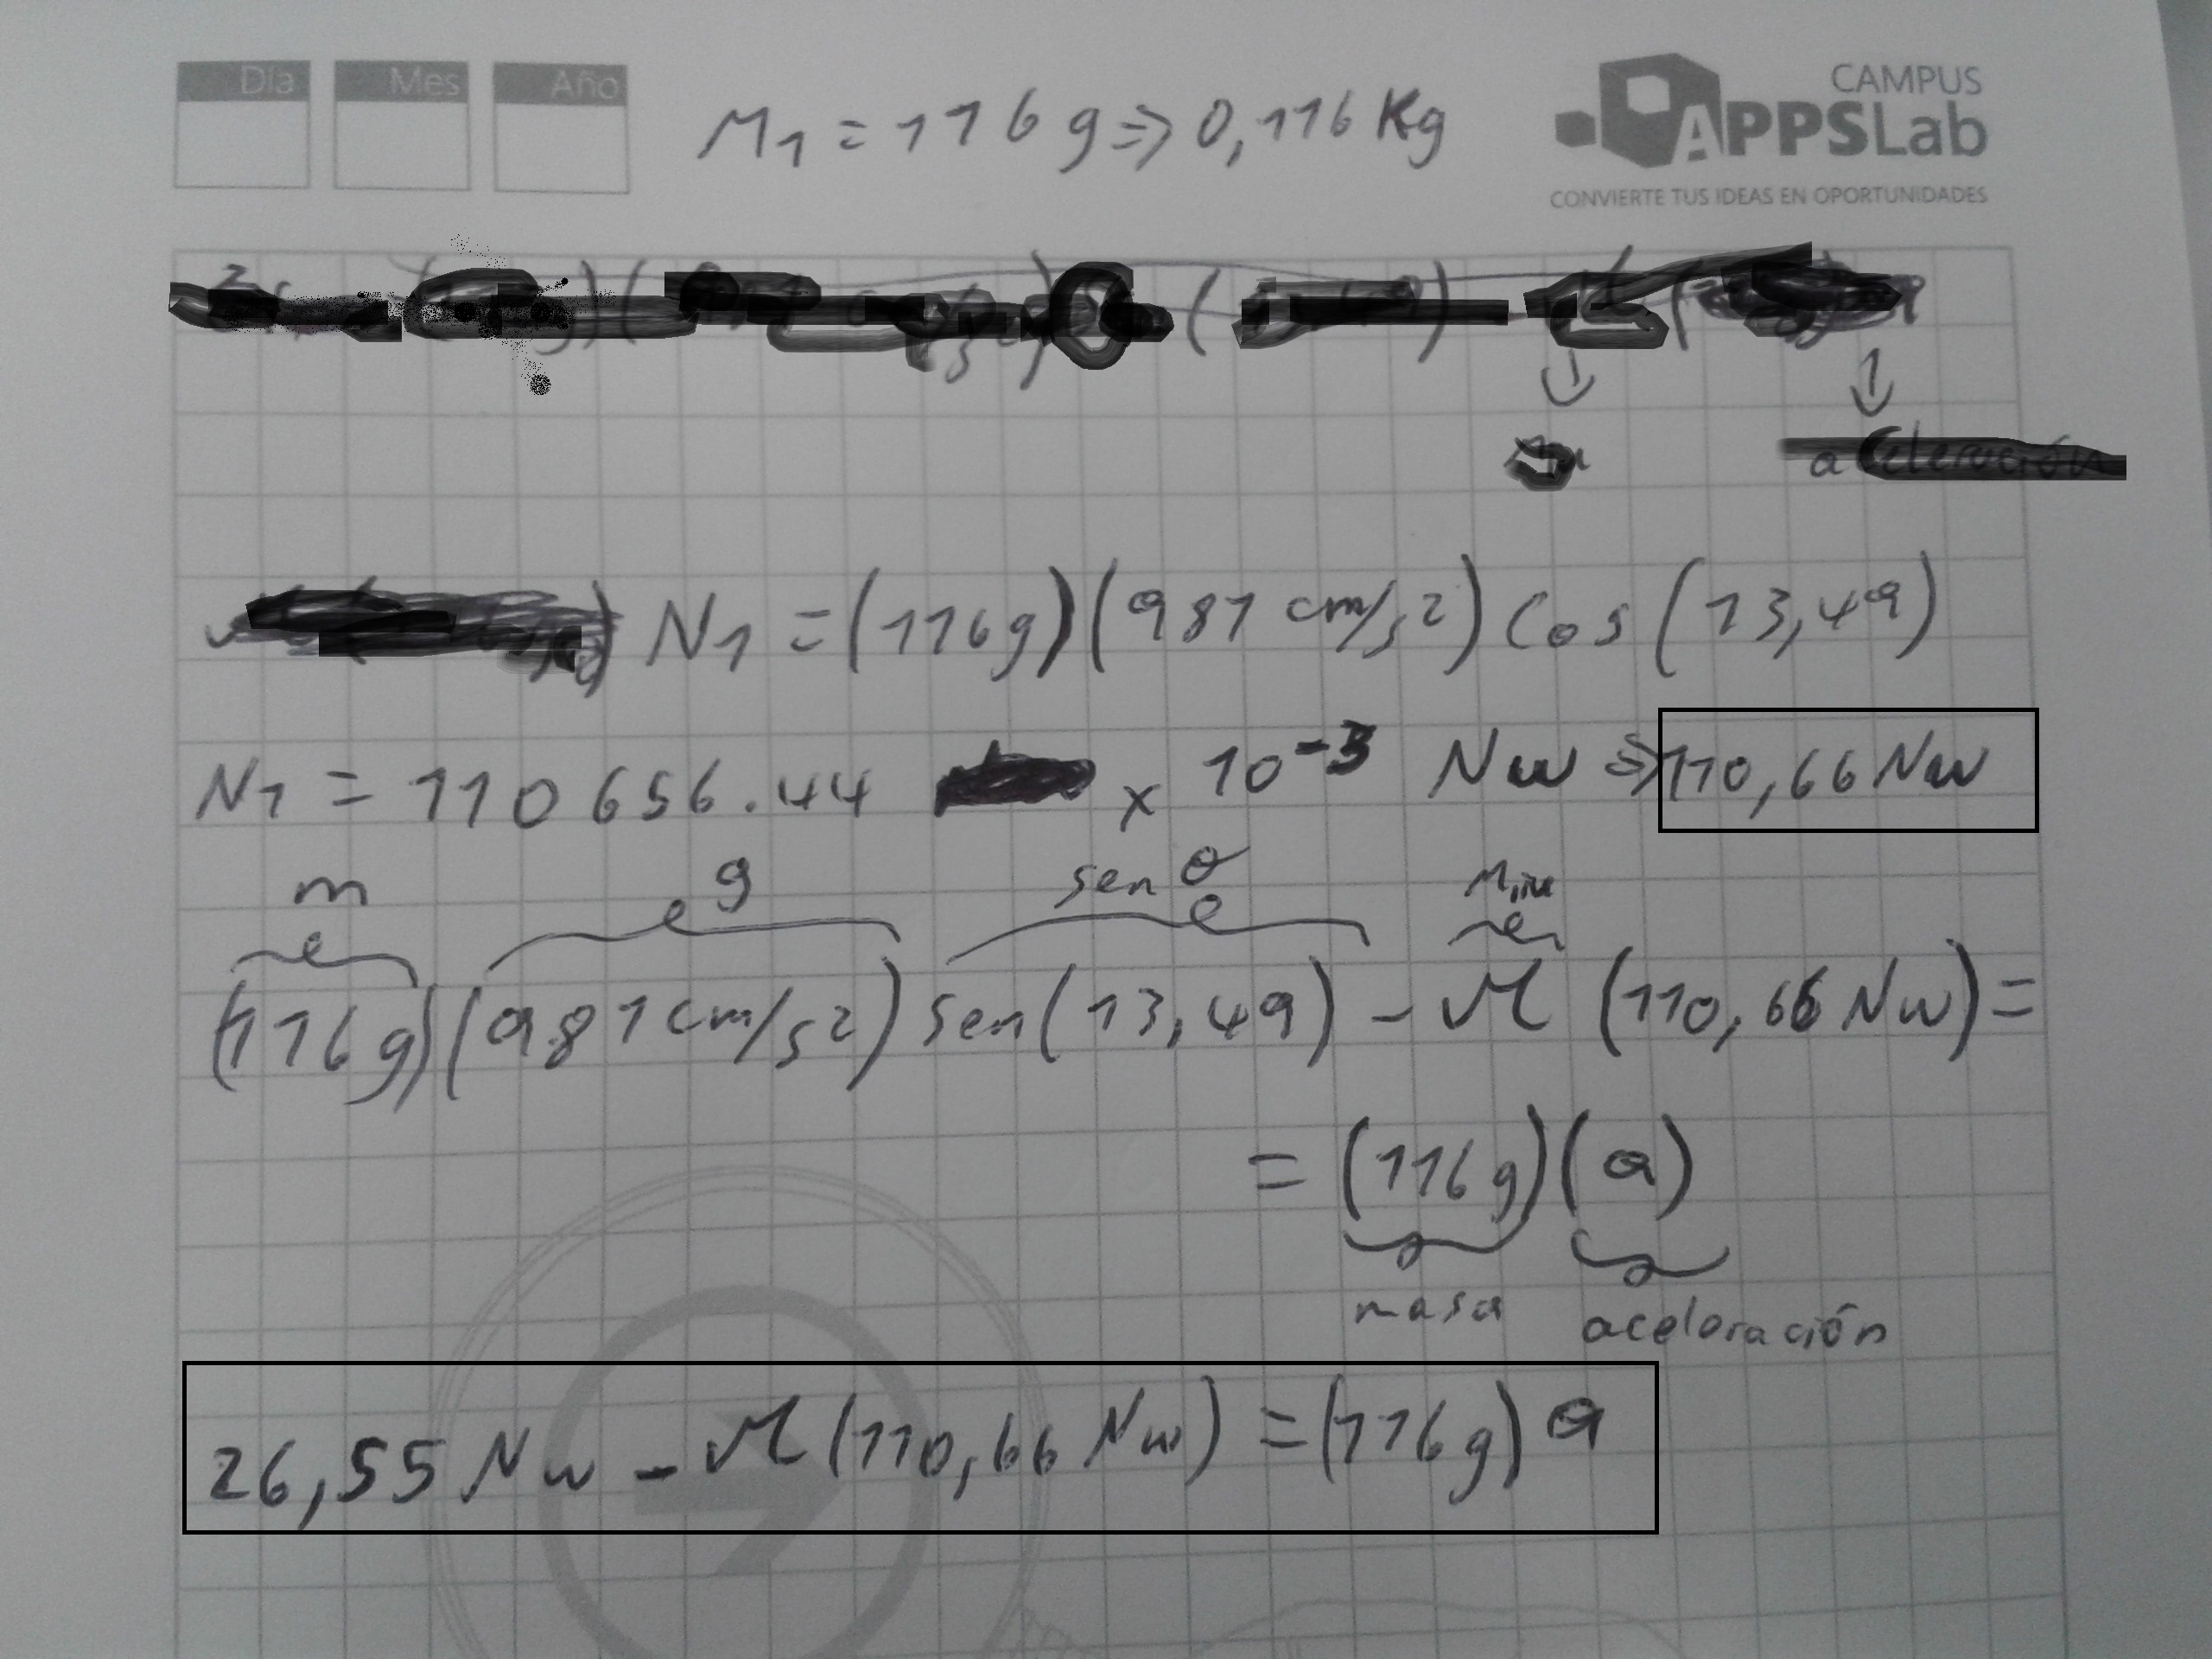 Día Mes Año
M1 = 116 g => 0,116 Kg
CAMPUS
APPSLab
CONVIERTE TUS IDEAS EN OPORTUNIDADES
aceleración
N1 = (116g)(981 cm/s2) Cos (13,49)
N1 = 110656.44 x 10-3 Nw => 110,66 Nw
m g sen θ Miu
(116g)(981cm/s2) sen(13,49) - M (110,66 Nw) =
= (116g)(a)
masa aceloración
26,55 Nw - M (110,66 Nw) = (116g) a